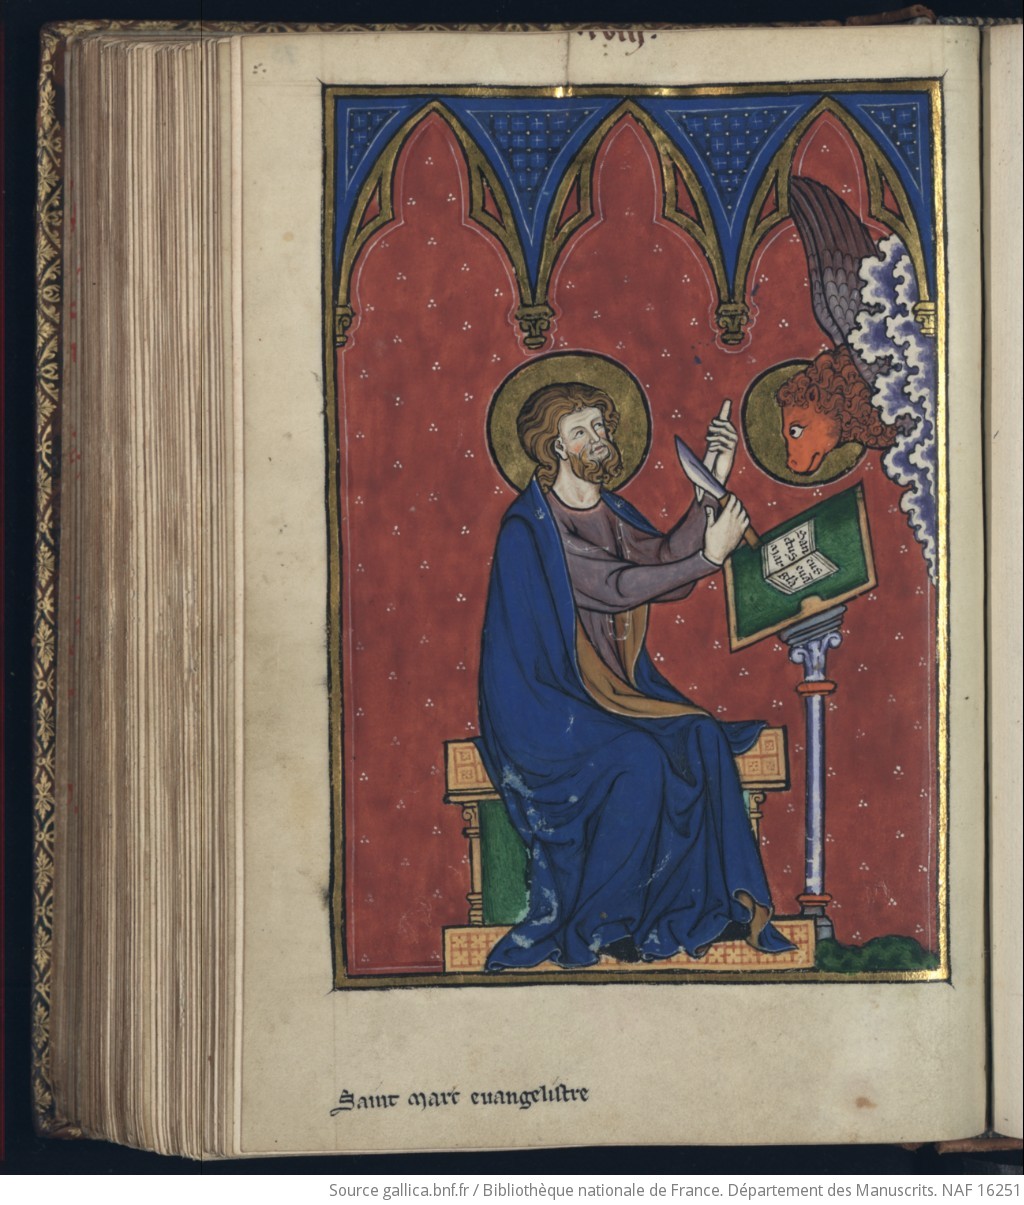 San
ctus
mar
cus
eua
Saint marc euangelistre
Source gallica.bnf.fr / Bibliothèque nationale de France. Département des Manuscrits. NAF 16251